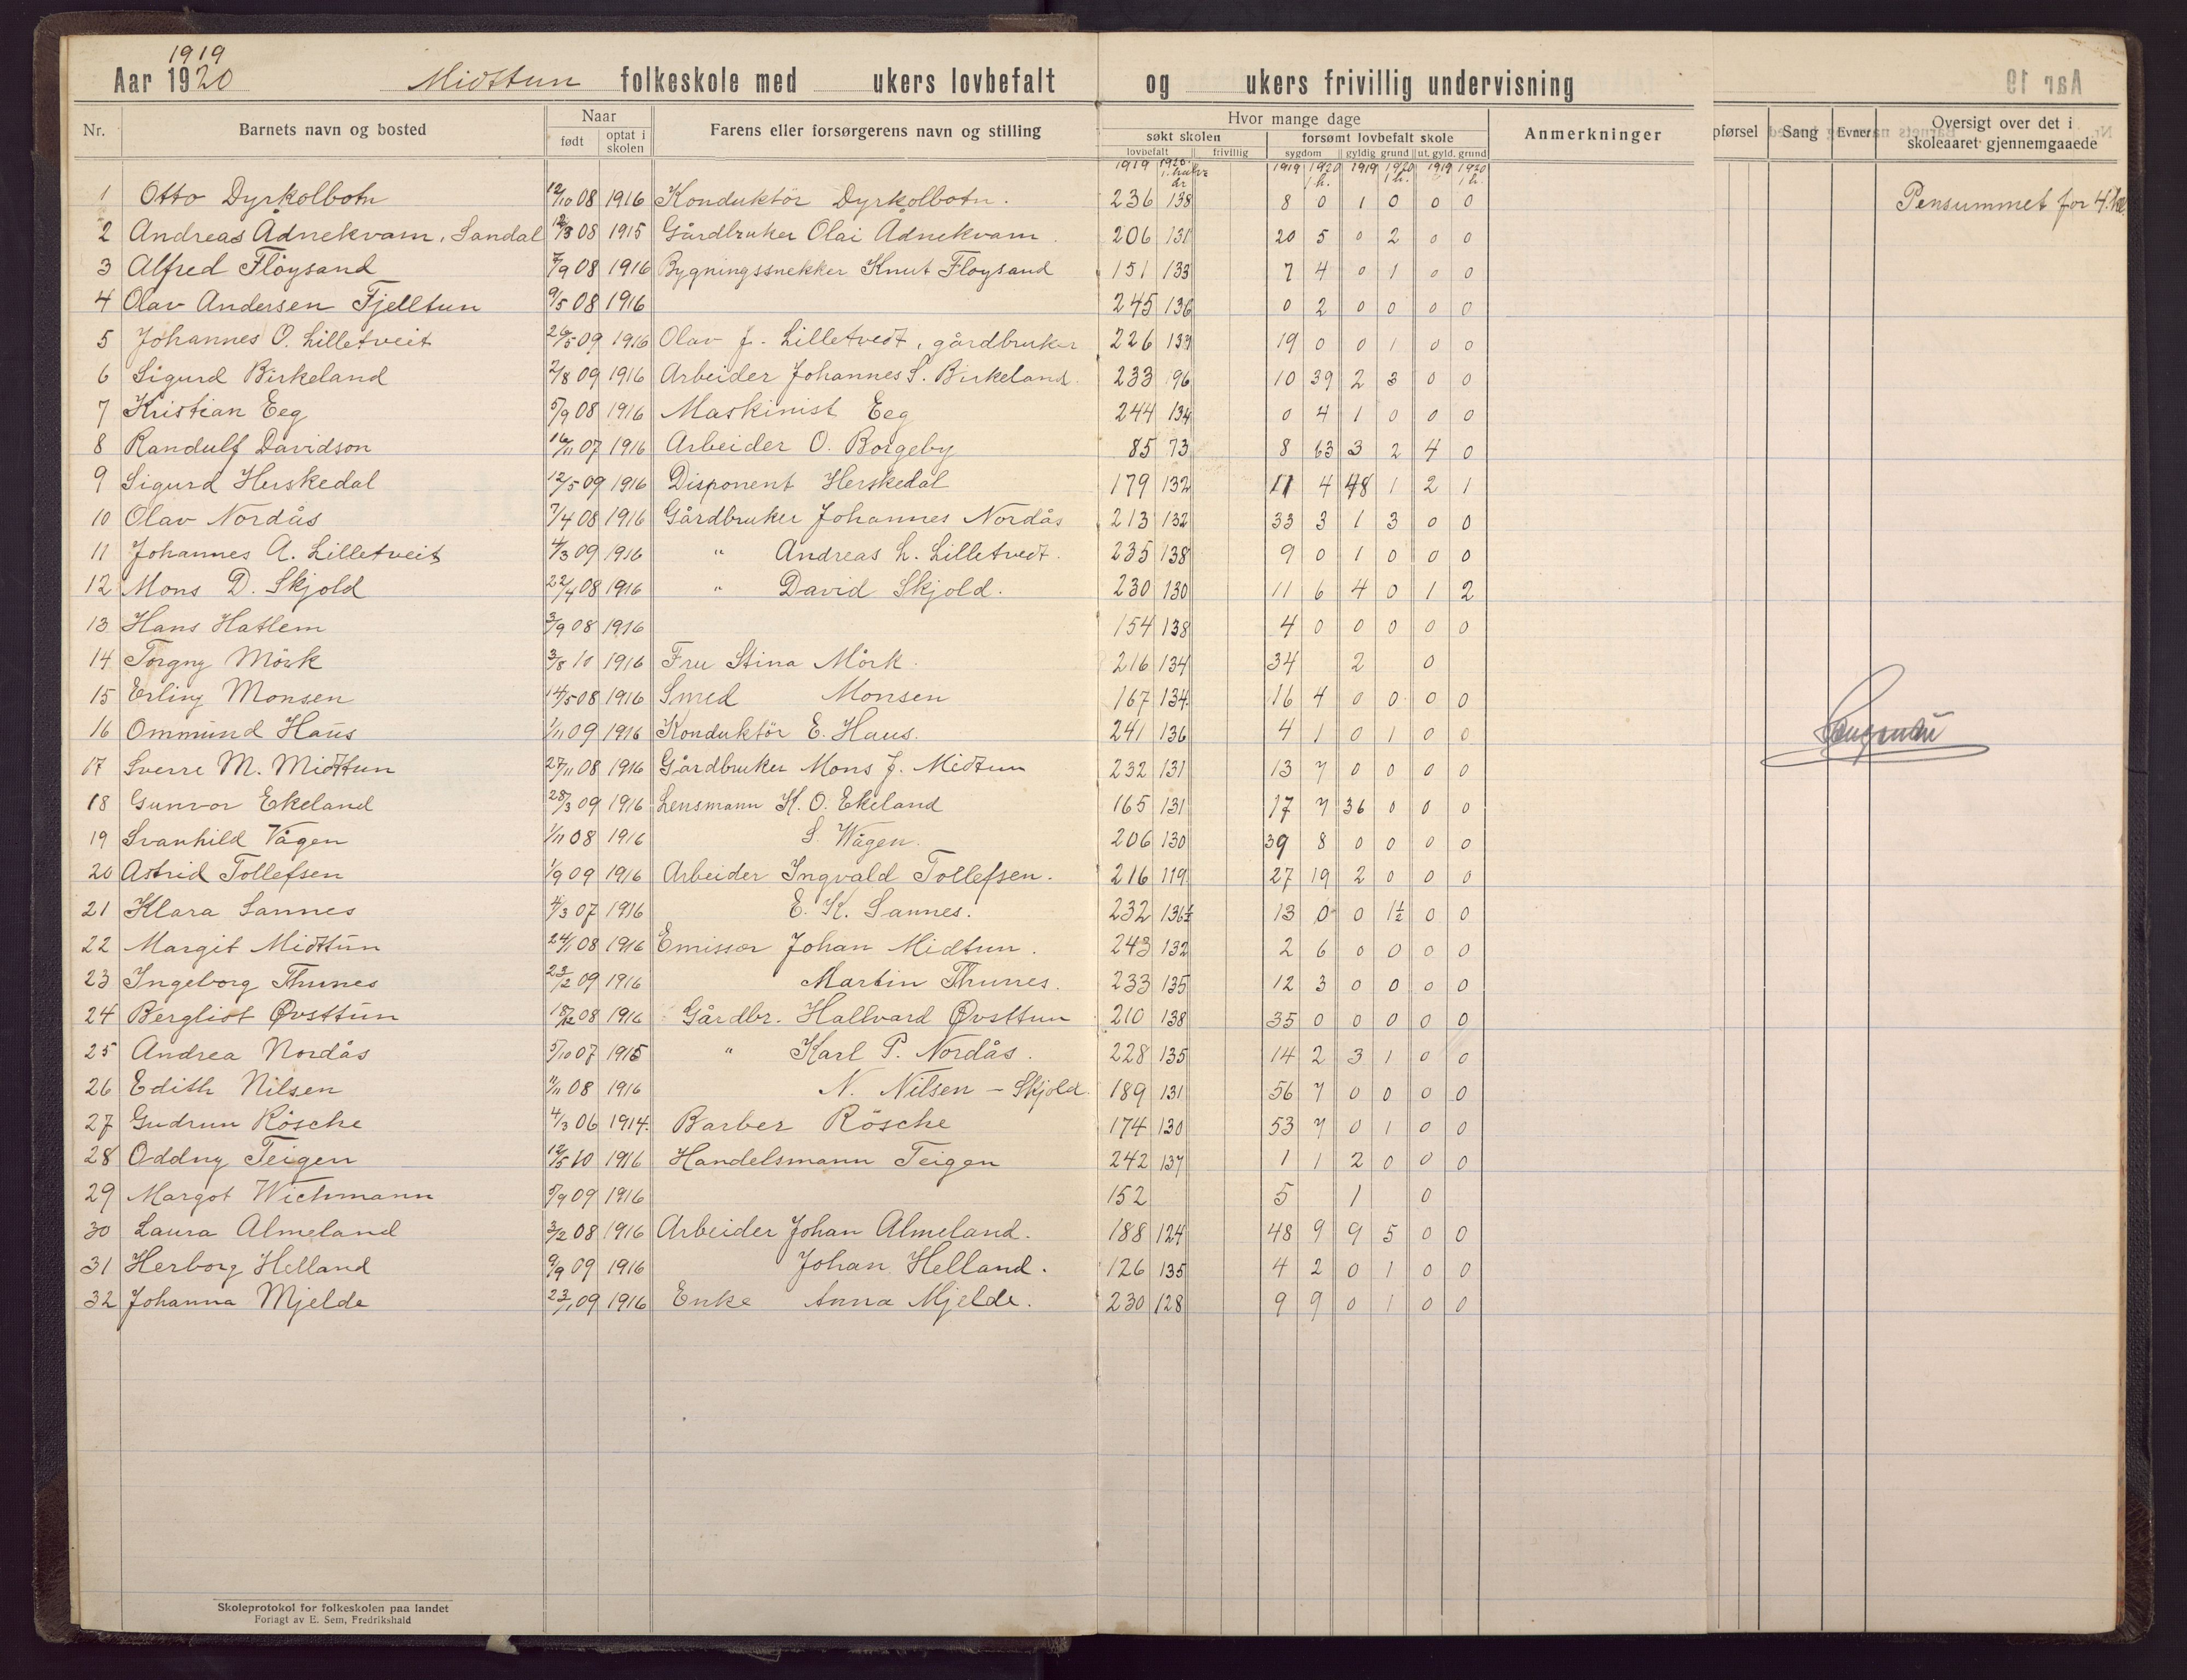 1919
Aar 1920 Midttun folkeskole med ukers lovbefalt og ukers frivillig undervisning
Nr. Barnets navn og bosted Naar født optat i skolen Farens eller forsørgerens navn og stilling Hvor mange dage søkt skolen lovbefalt frivillig forsømt lovbefalt skole sygdom gyldig grund ut. gyld. grund Anmerkninger pførsel Sang Evner Oversigt over det i skoleaaret gjennemgaaede
1919 1920 1. halve år 1919 1920 1 h. 1919 1920 1 h. 1919 1920 1 h.
1 Otto Dyrkolbotn 12/10 08 1916 Konduktör Dyrkolbotn. 236 138 8 0 1 0 0 0 Pensummet for 4. kl.
2 Andreas Ådnekvam, Sandal 12/3 08 1915 Gårdbruker Olai Ådnekvam. 206 131 20 5 0 2 0 0
3 Alfred Flöysand 7/9 08 1916 Bygningssnekker Knut Flöysand 151 133 7 4 0 1 0 0
4 Olav Andersen Fjelltun 9/5 08 1916 245 136 0 2 0 0 0 0
5 Johannes O. Lilletveit 26/5 09 1916 Olav J. Lilletvedt, gårdbruker 226 137 19 0 0 1 0 0
6 Sigurd Birkeland 2/8 09 1916 Arbeider Johannes S. Birkeland. 233 96 10 39 2 3 0 0
7 Kristian Eeg 5/9 08 1916 Maskinist Eeg 244 134 0 4 1 0 0 0
8 Randulf Davidson 16/11 07 1916 Arbeider O. Borgeby 85 73 8 63 3 2 4 0
9 Sigurd Herskedal 12/5 09 1916 Disponent Herskedal 179 132 11 4 48 1 2 1
10 Olav Nordås 7/4 08 1916 Gårdbruker Johannes Nordås 213 132 33 3 1 3 0 0
11 Johannes A. Lilletveit 4/3 09 1916 " Andreas L. Lilletvedt. 235 138 9 0 1 0 0 0
12 Mons D. Skjold 22/4 08 1916 " David Skjold. 230 130 11 6 4 0 1 2
13 Hans Hatlem 3/9 08 1916 154 138 4 0 0 0 0 0
14 Torgny Mörk 3/8 10 1916 Fru Stina Mörk. 216 134 34 2 0
15 Erling Monsen 14/5 08 1916 Smed Monsen 167 134 16 4 0 0 0 0
16 Ommund Haus 1/11 09 1916 Konduktör E. Haus. 241 136 4 1 0 1 0 0
17 Sverre M. Midttun 27/11 08 1916 Gårdbruker Mons J. Midtun 232 131 13 7 0 0 0 0
18 Gunvor Ekeland 28/3 09 1916 Lensmann K. O. Ekeland 165 131 17 7 36 0 0 0
19 Svanhild Vågen 1/11 08 1916 S. Wågen. 206 130 39 8 0 0 0 0
20 Astrid Tollefsen 1/9 09 1916 Arbeider Ingvald Tollefsen. 216 119 27 19 2 0 0 0
21 Klara Sannes 4/3 07 1916 E. K. Sannes. 232 136½ 13 0 0 1½ 0 0
22 Margit Midttun 24/1 08 1916 Emissær Johan Midtun. 243 132 2 6 0 0 0 0
23 Ingeborg Thunes 23/2 09 1916 Martin Thunes. 233 135 12 3 0 0 0 0
24 Bergliot Øvsttun 18/12 08 1916 Gårdbr. Hallvard Øvsttun 210 138 35 0 0 0 0 0
25 Andrea Nordås 5/10 07 1915 " Karl P. Nordås. 228 135 14 2 3 1 0 0
26 Edith Nilsen 11/11 08 1916 N. Nilsen - Skjold. 189 131 56 7 0 0 0 0
27 Gudrun Rösche 4/3 06 1914. Barber Rösche 174 130 53 7 0 1 0 0
28 Oddny Teigen 12/5 10 1916 Handelsmann Teigen 242 137 1 1 2 0 0 0
29 Margot Wichmann 5/9 09 1916 152 5 1 0
30 Laura Almeland 3/2 08 1916 Arbeider Johan Almeland. 188 124 48 9 9 5 0 0
31 Herborg Helland 9/9 09 1916 Johan Helland. 126 135 4 2 0 1 0 0
32 Johanna Mjelde 23/1 09 1916 Enke Anna Mjelde. 230 128 9 9 0 1 0 0
Skoleprotokol for folkeskolen paa landet
Forlagt av E. Sem, Fredrikshald